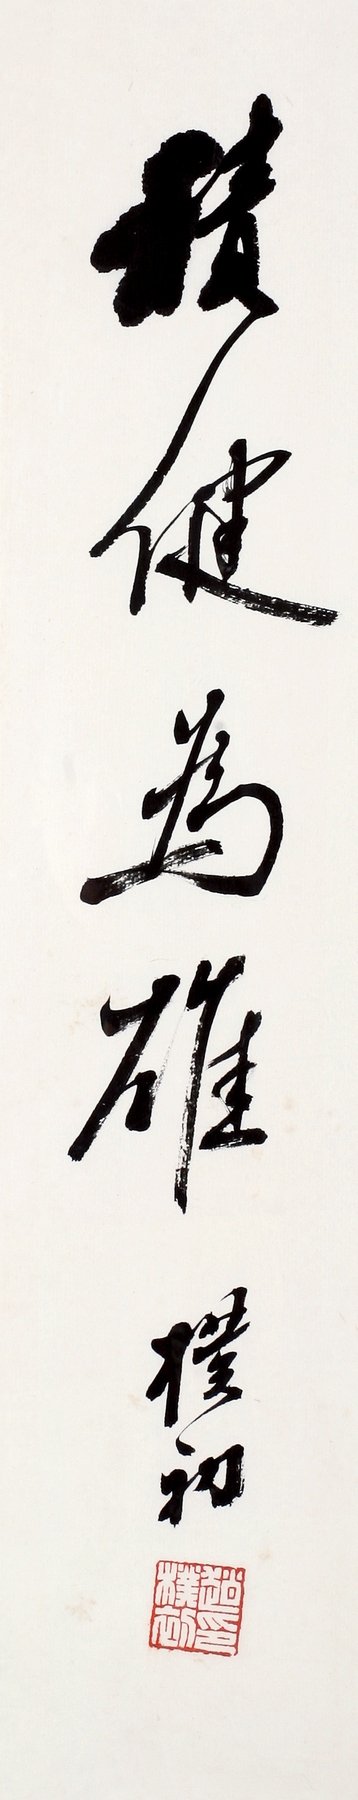 積健為雄
樸初
趙樸初印